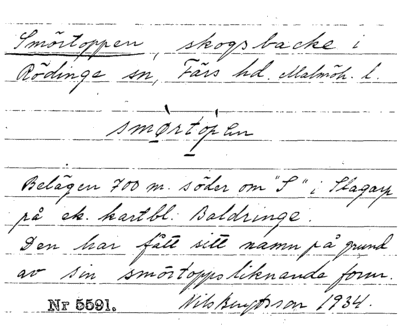 Smörtoppen, skogsbacke i
Rödinge sn, Färs hd. Malmöh. l.
smørtópen
Belägen 700 m. söder om "S" i Slagarp
på ek. kartbl. Baldringe.
Den har fått sitt namn på grund
av sin smörtoppsliknande form.
Nr 5591. Nils Bengtsson 1934.